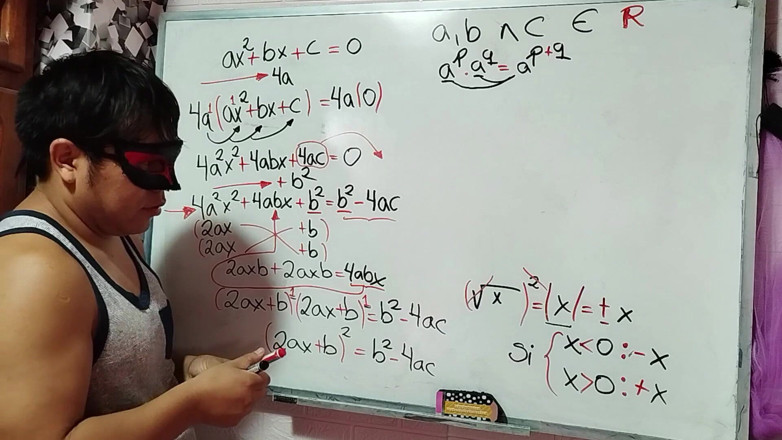 ax²+bx+c=0
4a
4a¹(ax¹²+bx+c)=4a(0)
4a²x²+4abx+4ac=0
+b²
4a²x²+4abx+b²=b²-4ac
(2ax +b)
(2ax +b)
2axb+2axb=4abx
(2ax+b)¹(2ax+b)¹=b²-4ac
(2ax+b)²=b²-4ac
a,b ∧ c ∈ R
aᵖ.a^q=a^p+q
(√x)²=|x|=±x
Si { x<0:-x
x>0:+x